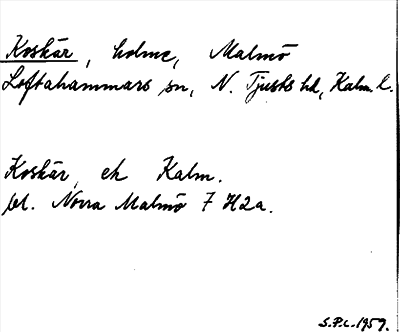 Koskär, holme, Malmö
Loftahammars sn, N. Tjusts hd, Kalm. l.
Koskär, ek Kalm.
bl. Norra Malmö 7 H2a.
S.P.L. 1959.